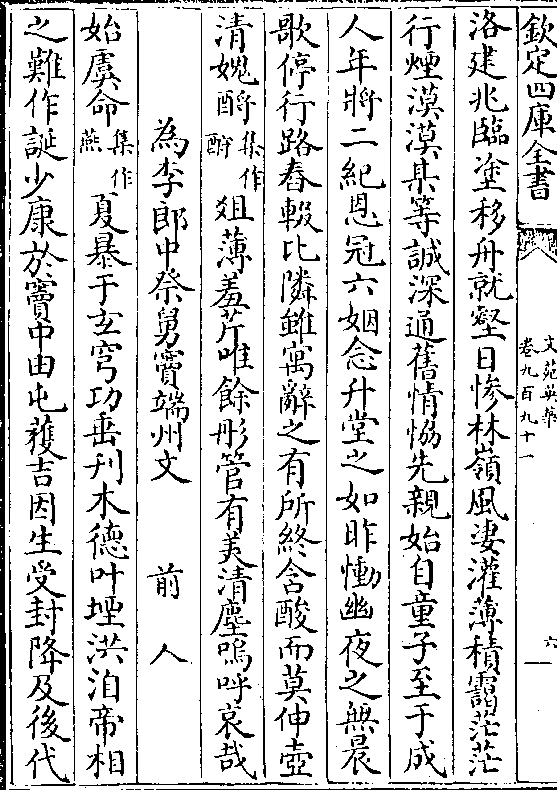 欽定四庫全書
文苑英華
卷九百九十一
六
洛建兆臨塗移舟就壑日慘林嶺風淒灌薄積靄茫茫
行煙漠漠某等誠深通舊情恊先親始自童子至于成
人年將二紀恩冠六姻念升堂之如昨慟幽夜之無晨
歌停行路舂輟比隣雖寓辭之有所終含酸而莫伸壺
清媿酹集作酹俎薄羞芹唯餘彤管有美清塵嗚呼哀哉
為李郎中祭舅竇端州文 前人
始虞命集作燕夏暴于玄穹功垂刋木德叶堙洪洎帝相
之難作誕少康於竇中由屯蒦吉因生受封降及後代